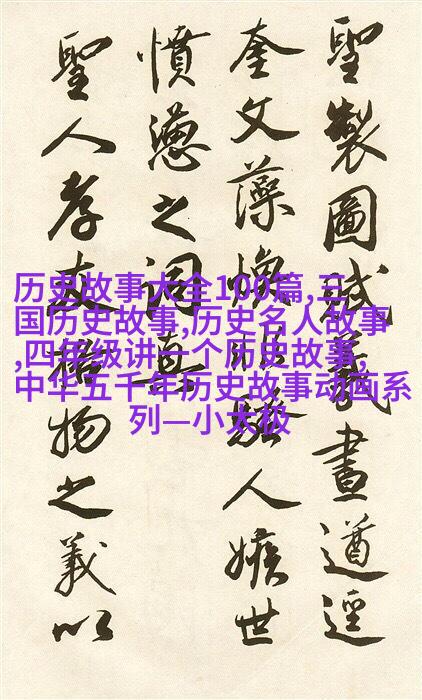 聖製圖賦義畫遒逕
奎文藻煥離騷人嫉世
憤懣之詞真
聖人孝友格物之義以
历史故事大全100篇,三
国历史故事,历史名人故事
,四年级讲一个历史故事,
中华五千年历史故事动画系
列—小太极